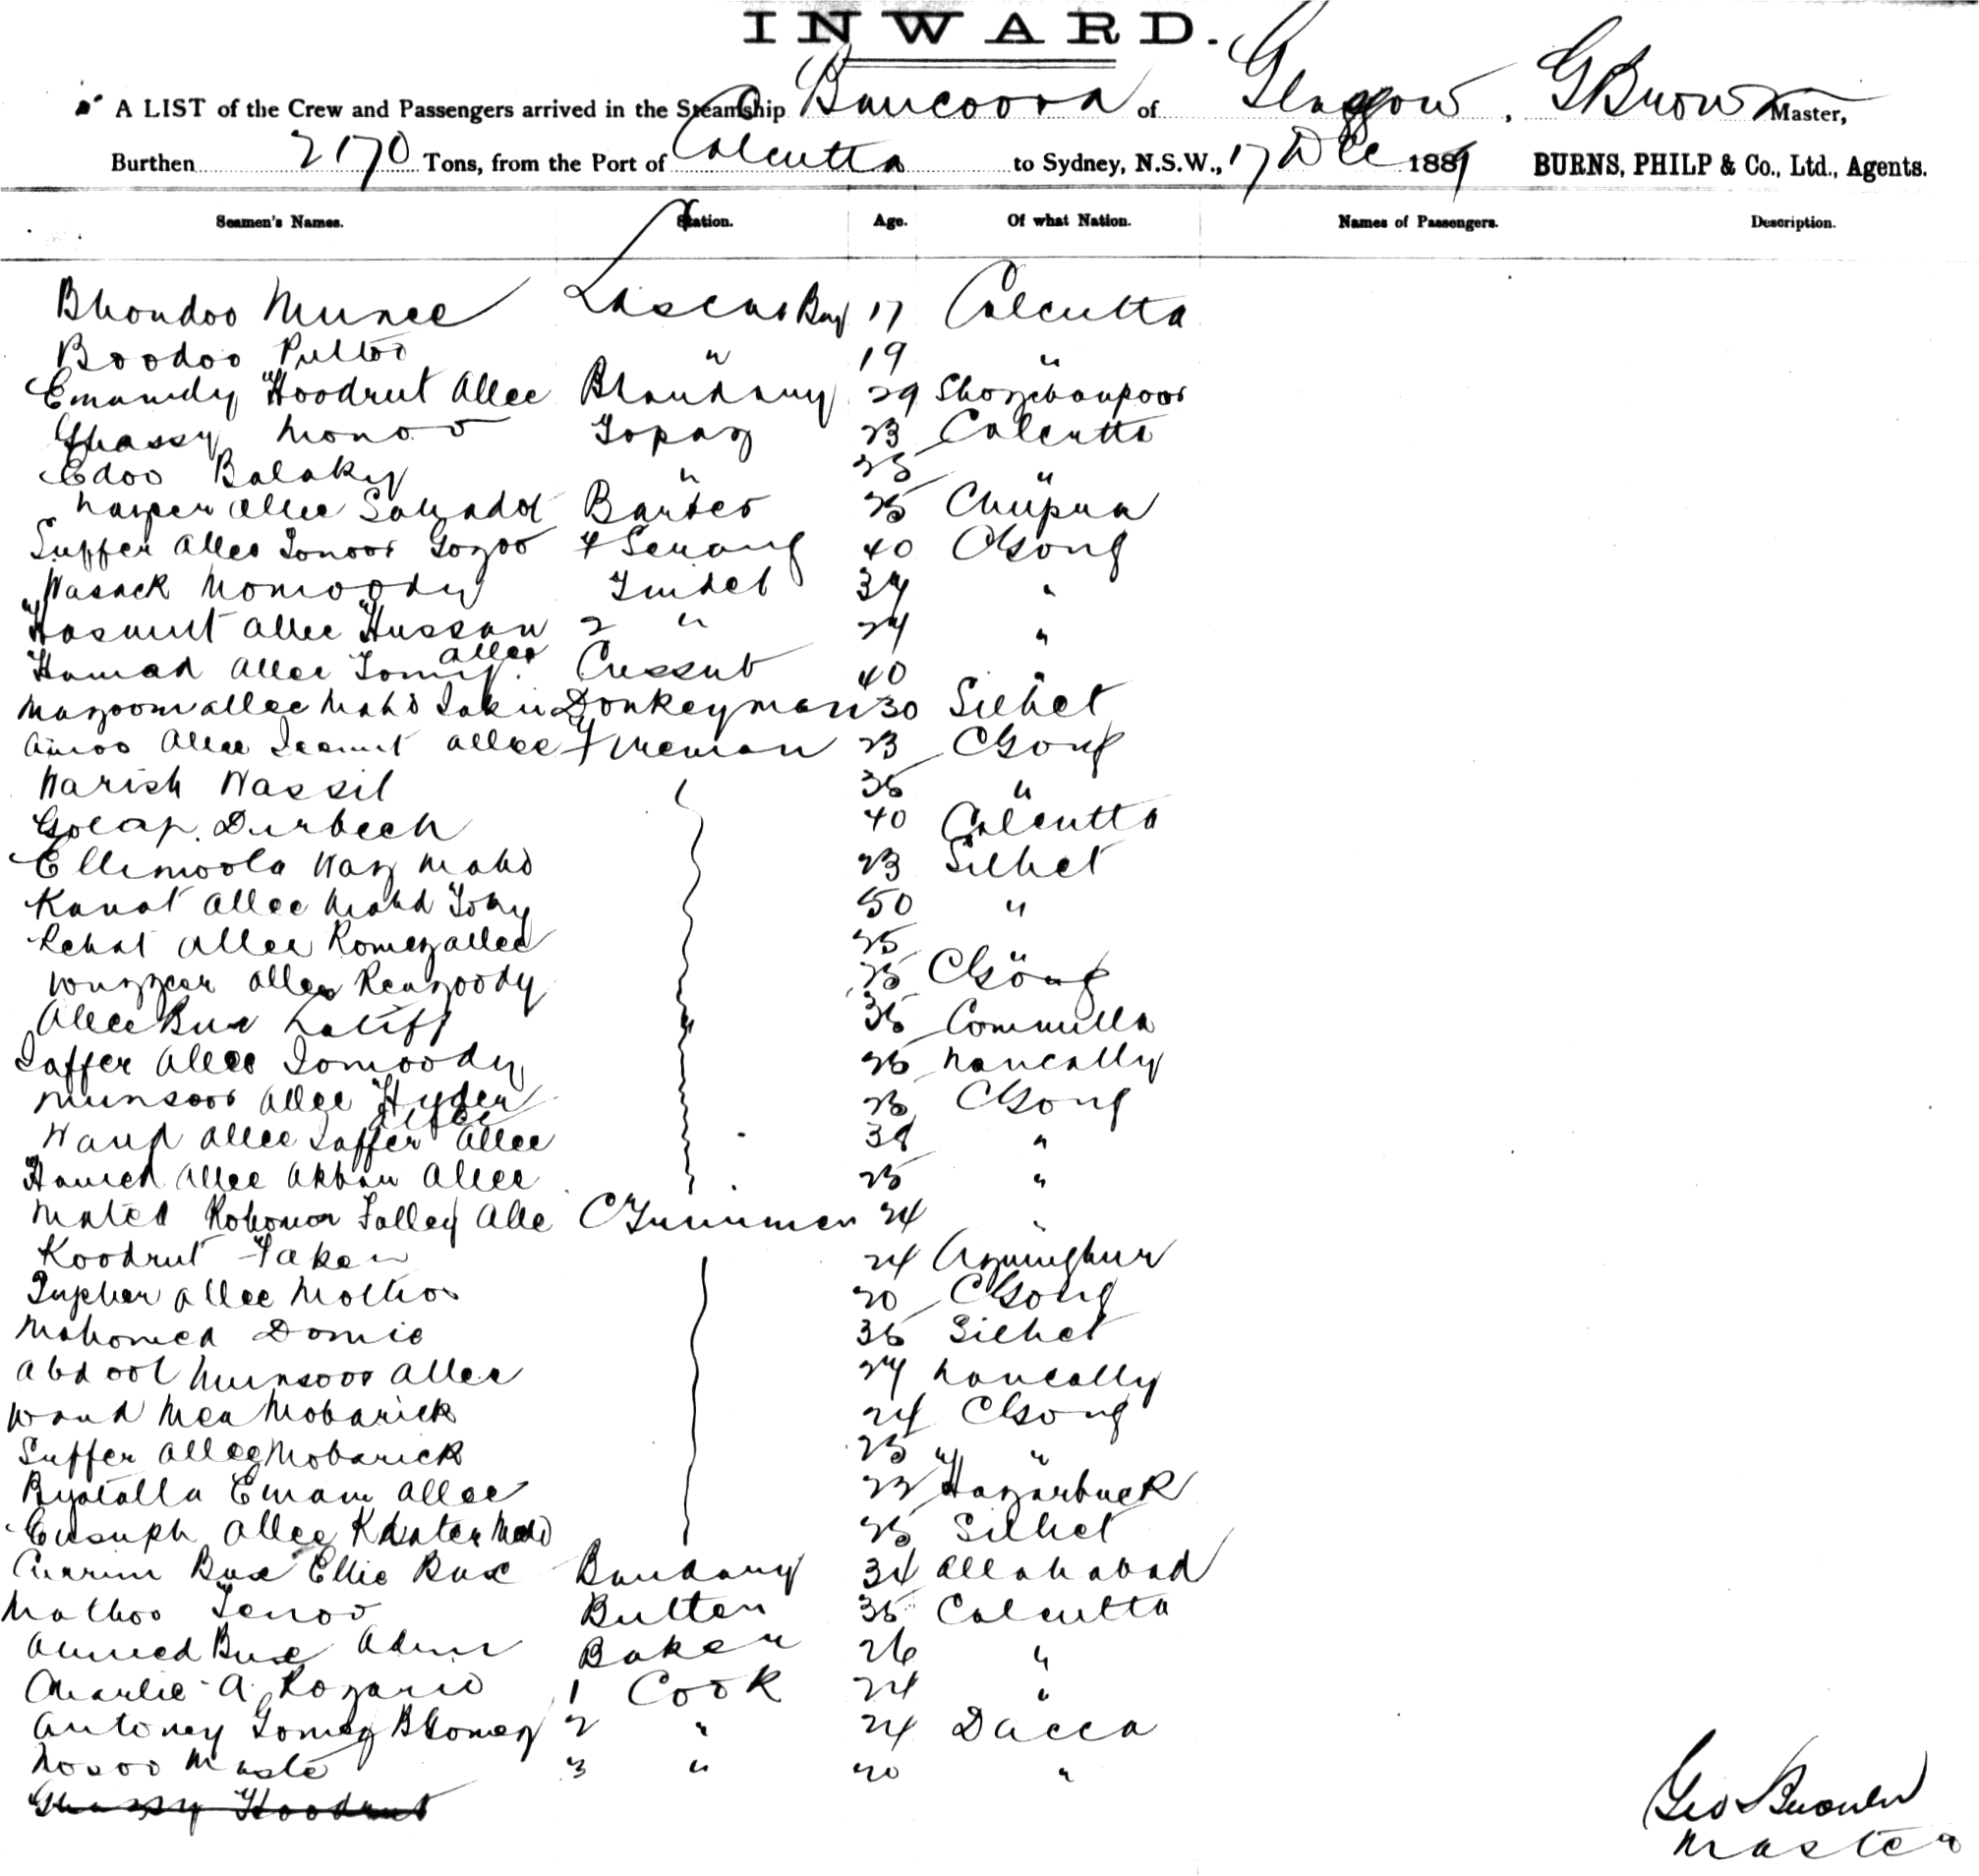 INWARD.
A LIST of the Crew and Passengers arrived in the Steamship Bancoora of Glasgow, G Brown Master,
Burthen 2170 Tons, from the Port of Calcutta to Sydney, N.S.W., 17 Dec 1889 BURNS, PHILP & Co., Ltd., Agents.
Seamen's Names. Station. Age. Of what Nation. Names of Passengers. Description.
Bhondoo Munee Lascar Boy 17 Calcutta
Boodoo Pultoo " 19 "
Emamdy Hoodrut Allee Bhandary 29
Ghassy Monoo Topaz 23 Calcutta
Edoo Balaky " 25 "
Allee Barber 25 Chupra
Suffer Allee Gozoo 1 Serang 40 CGong
Wasack Momoody Tindel 34 "
Hosmut Allee Hussan 2 " 24 "
Hamad Allee Allee Cussub 40 "
Mazoom allee Mahd Donkeyman 30 Silhet
Allee allee Fireman 23 CGong
Warish Wassil 35 "
Golap Durbech 40 Calcutta
Ellimoola Waz Mahd 23 Silhet
Kanat Allee Mahd 50 "
Rehat Allee Romezallee 25 "
Wuzzeer Allee Reazoody 25 CGong
Allee Bux Latiff 35 Commilla
Jaffer Allee Jomoody 25 Noucally
Munsoor Allee Hyder Allee 23 CGong
Waud Allee Jaffer Allee 38 "
Hamed Allee Akbar Allee 25 "
Maled Rohomon Falley Alle CTrimmer 24 "
Koodrut Faker 24 Azimghur
Allee 20 CGong
Mahomed Domie 35 Silhet
Abdool Munsoor Allee 24 Noucally
Waud Mea Mobarick 24 CGong
Suffer Allee Mobarick 25 "
Byatalla Emam Allee 22 Hazarbuck
Eusuph Allee Mahd 25 Silhet
Currim Bux Ellie Bux Bandary 34 Allahabad
Mathoo Butler 35 Calcutta
Ahmed Bux Baker 26 "
Charlie A. Rozario 1 Cook 24 "
Antoney Gomez BGomez 2 " 24 Dacca
Nosoo 3 " 20 "
Ghassy Hoodrut
Geo Brown
Master